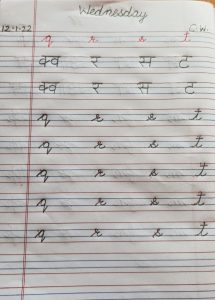 Wednesday
12-1-22 C.W.
q r s t
क्व र स ट
क्व र स ट
q r s t
q r s t
q r s t
q r s t
q r s t